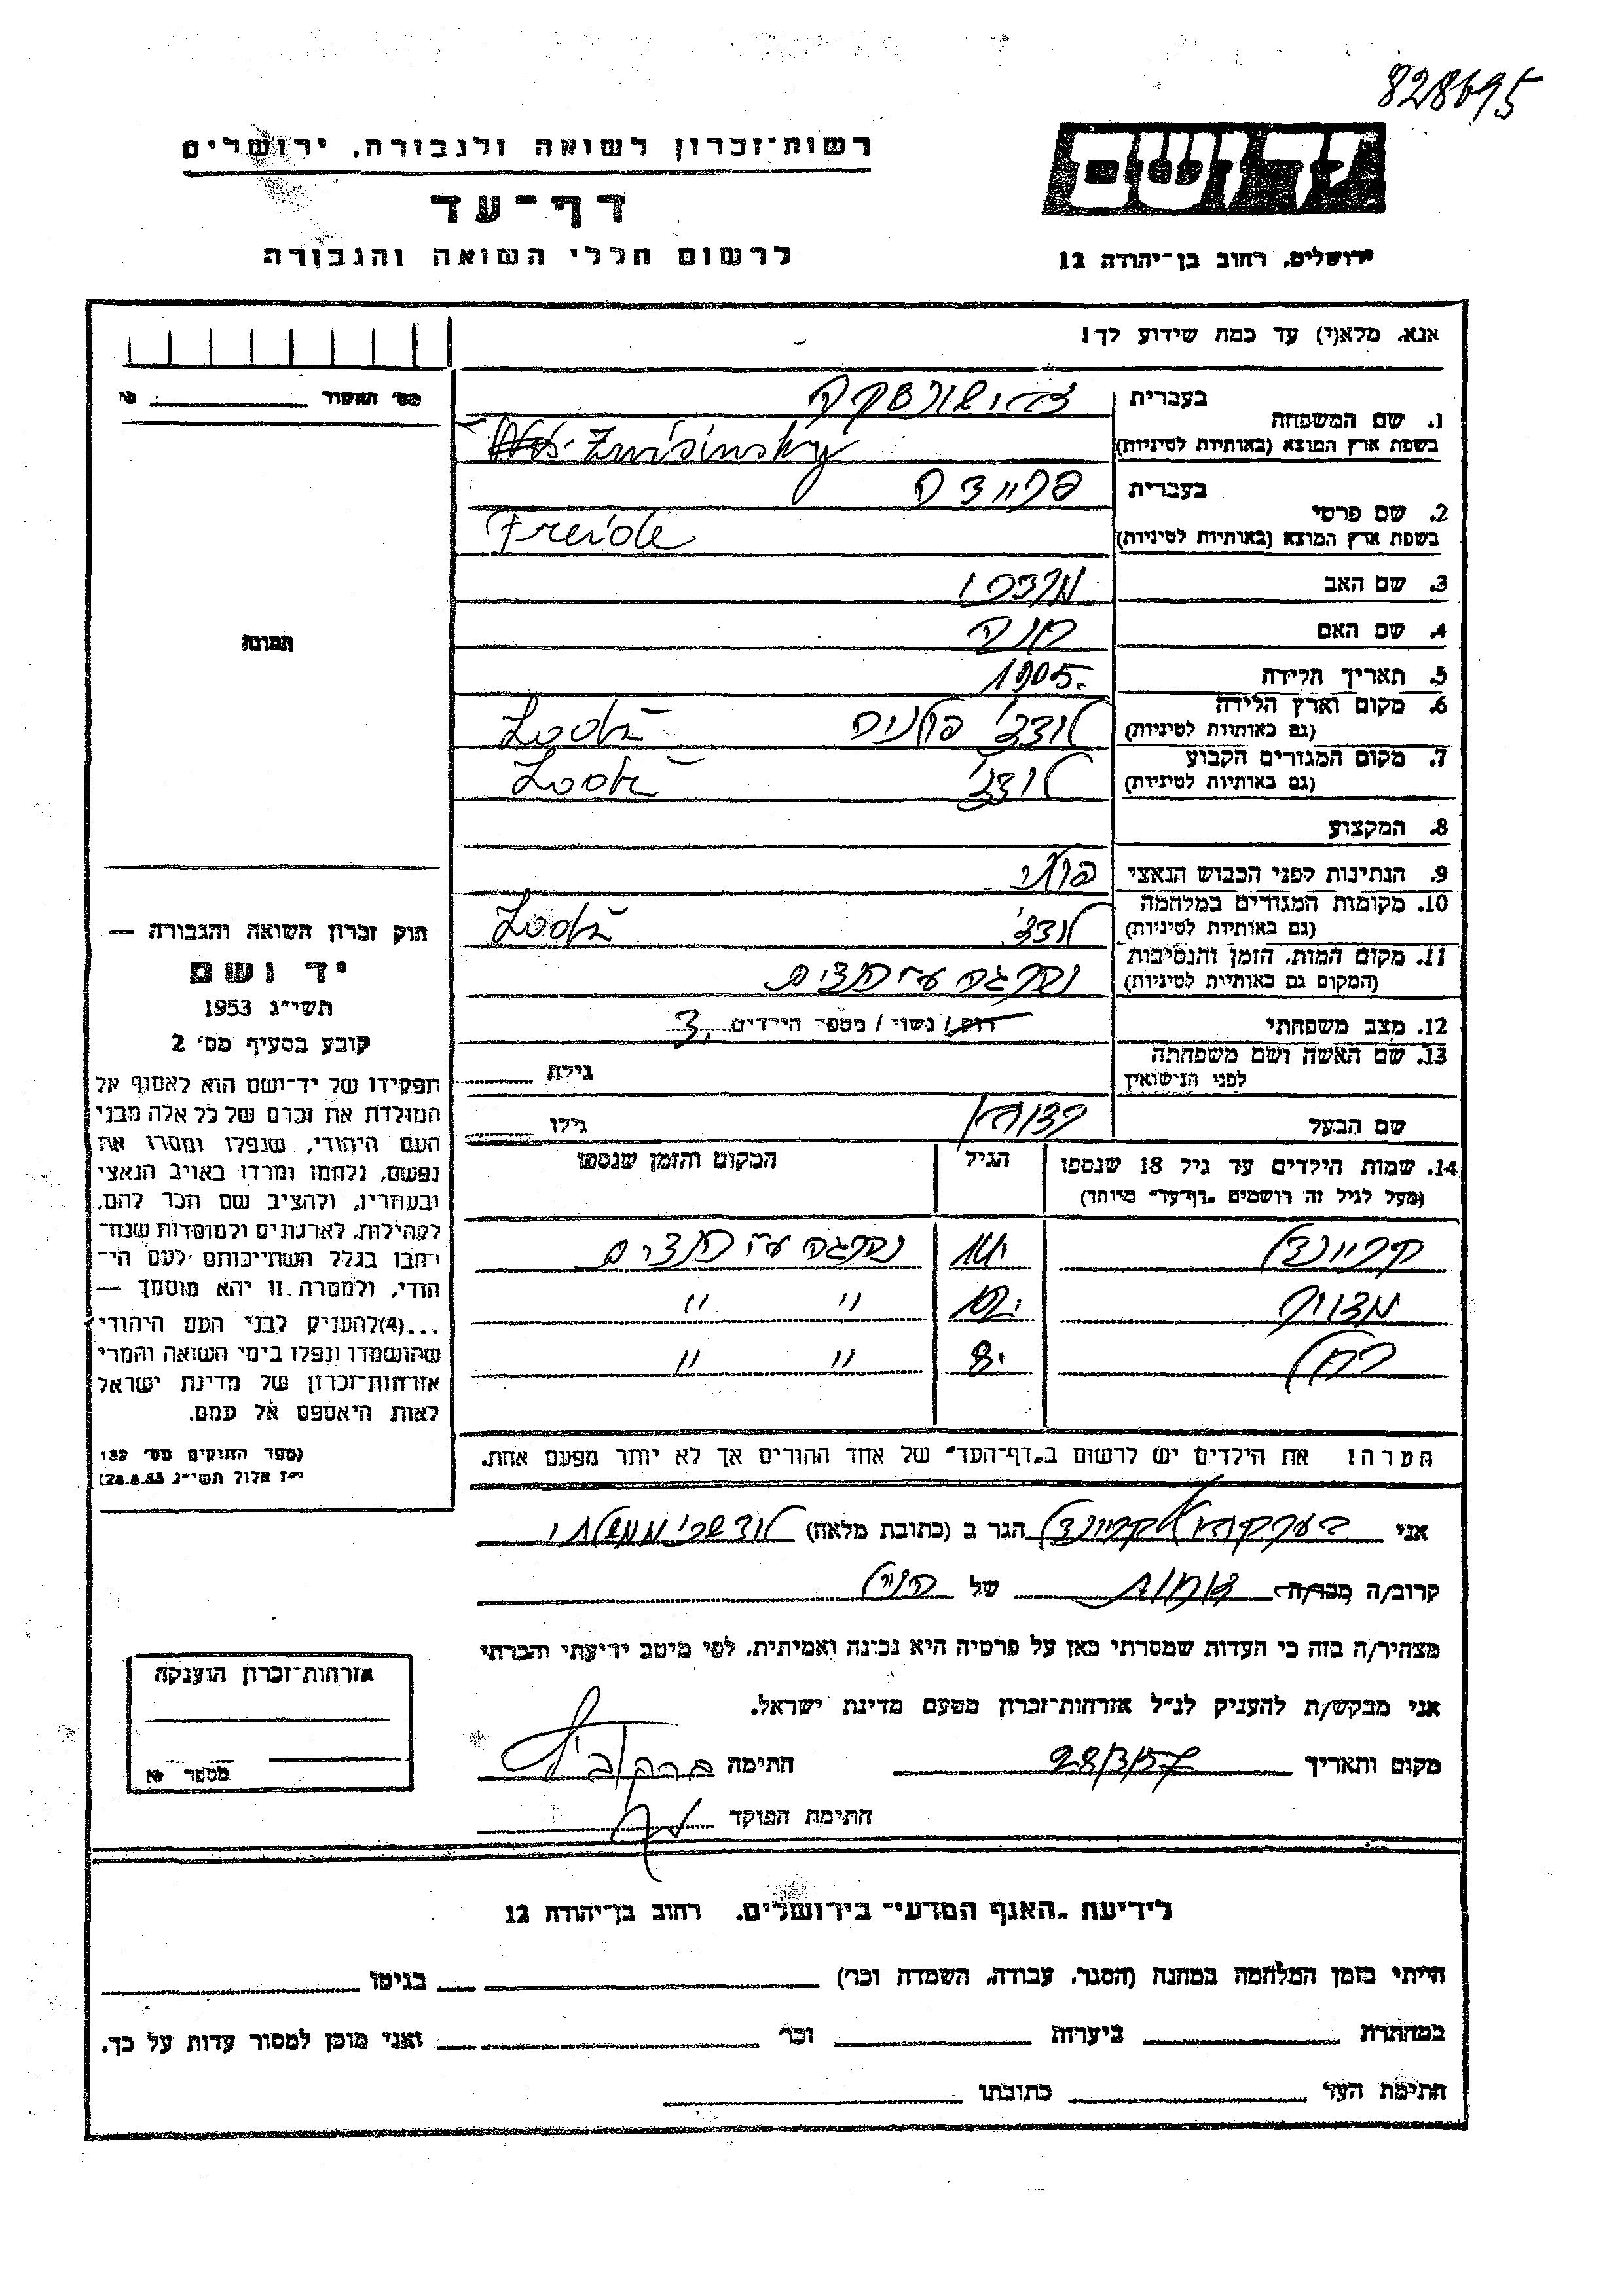 828695
רשות־זכרון לשואה ולגבורה, ירושלים
ידושם
דף־עד
לרשום חללי השואה והגבורה
ירושלים, רחוב בן־יהודה 12
אנא, מלא(י) עד כמה שידוע לך!
מס' האשור №
1. שם המשפחה
בעברית
בשפת ארץ המוצא (באותיות לטיניות)
2. שם פרטי
בעברית
פריידה
בשפת ארץ המוצא (באותיות לטיניות) Freide
3. שם האב מרדכי
4. שם האם חנה
5. תאריך הלידה 1905.
6. מקום וארץ הלידה לודז' פולניה
(גם באותיות לטיניות)
7. מקום המגורים הקבוע לודז'
(גם באותיות לטיניות)
8. המקצוע
9. הנתינות לפני הכבוש הנאצי
10. מקומות המגורים במלחמה לודז'
(גם באותיות לטיניות)
11. מקום המות, הזמן והנסיבות נהרגה ע"י הנצים
(המקום גם באותיות לטיניות)
12. מצב משפחתי רוק/ נשוי/ מספר הילדים 3.
13. שם האשה ושם משפחתה גילה
לפני הנישואין
שם הבעל גילו
14. שמות הילדים עד גיל 18 שנספו הגיל המקום והזמן שנספו
(מעל לגיל זה רושמים „דף־עד” מיוחד)
נהרגה ע"י הנצים
" "
8 " "
הערה! את הילדים יש לרשום ב„דף־העד” של אחד ההורים אך לא יותר מפעם אחת.
תמונה
חוק זכרון השואה והגבורה —
יד ושם
תשי״ג 1953
קובע בסעיף מס' 2
תפקידו של יד־ושם הוא לאסוף אל
המולדת את זכרם של כל אלה מבני
העם היהודי, שנפלו ומסרו את
נפשם, נלחמו ומרדו באויב הנאצי
ובעוזריו, ולהציב שם וזכר להם,
לקהילות, לארגונים ולמוסדות שנח־
רבו בגלל השתייכותם לעם הי־
הודי, ולמטרה זו יהא מוסמך —
...(4)להעניק לבני העם היהודי
שהושמדו ונפלו בימי השואה והמרי
אזרחות־זכרון של מדינת ישראל
לאות היאספם אל עמם.
(ספר החוקים מס' 132
י״ז אלול תשי״ג 28.8.53)
אני הגר ב (כתובת מלאה)
קרוב/ה מכר/ה של
מצהיר/ה בזה כי העדות שמסרתי כאן על פרטיה היא נכונה ואמיתית, לפי מיטב ידיעתי והכרתי
אני מבקש/ת להעניק לנ״ל אזרחות־זכרון מטעם מדינת ישראל.
מקום ותאריך 28/3/57 חתימה
חתימת הפוקד
אזרחות־זכרון הוענקה
מספר №
לידיעת „האגף המדעי” בירושלים, רחוב בן־יהודה 12
הייתי בזמן המלחמה במחנה (הסגר, עבודה, השמדה וכו') בגיטו
במחתרת ביערות וכו' ואני מוכן למסור עדות על כך.
חתימת העד כתובתו